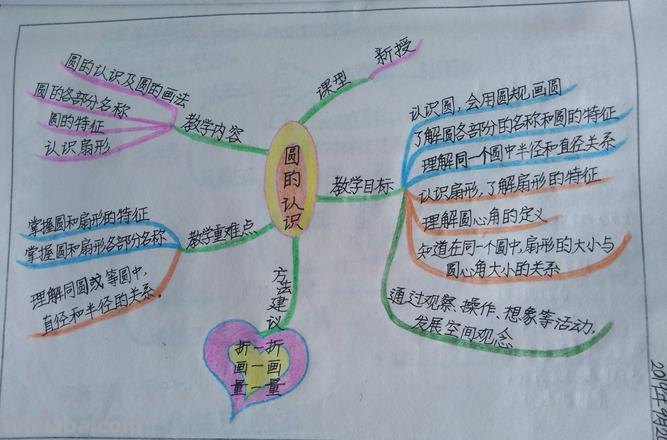 圆的认识
课型
新授
教学内容
圆的认识及圆的画法
圆的各部分名称
圆的特征
认识扇形
教学目标
认识圆，会用圆规画圆
了解圆各部分的名称和圆的特征
理解同一个圆中半径和直径关系
认识扇形，了解扇形的特征
理解圆心角的定义
知道在同一个圆中，扇形的大小与
圆心角大小的关系
通过观察、操作、想象等活动，
发展空间观念
教学重难点
掌握圆和扇形的特征
掌握圆和扇形各部分名称
理解同圆或等圆中，
直径和半径的关系。
方法建议
折一折
画一画
量一量
tuhuaba.com